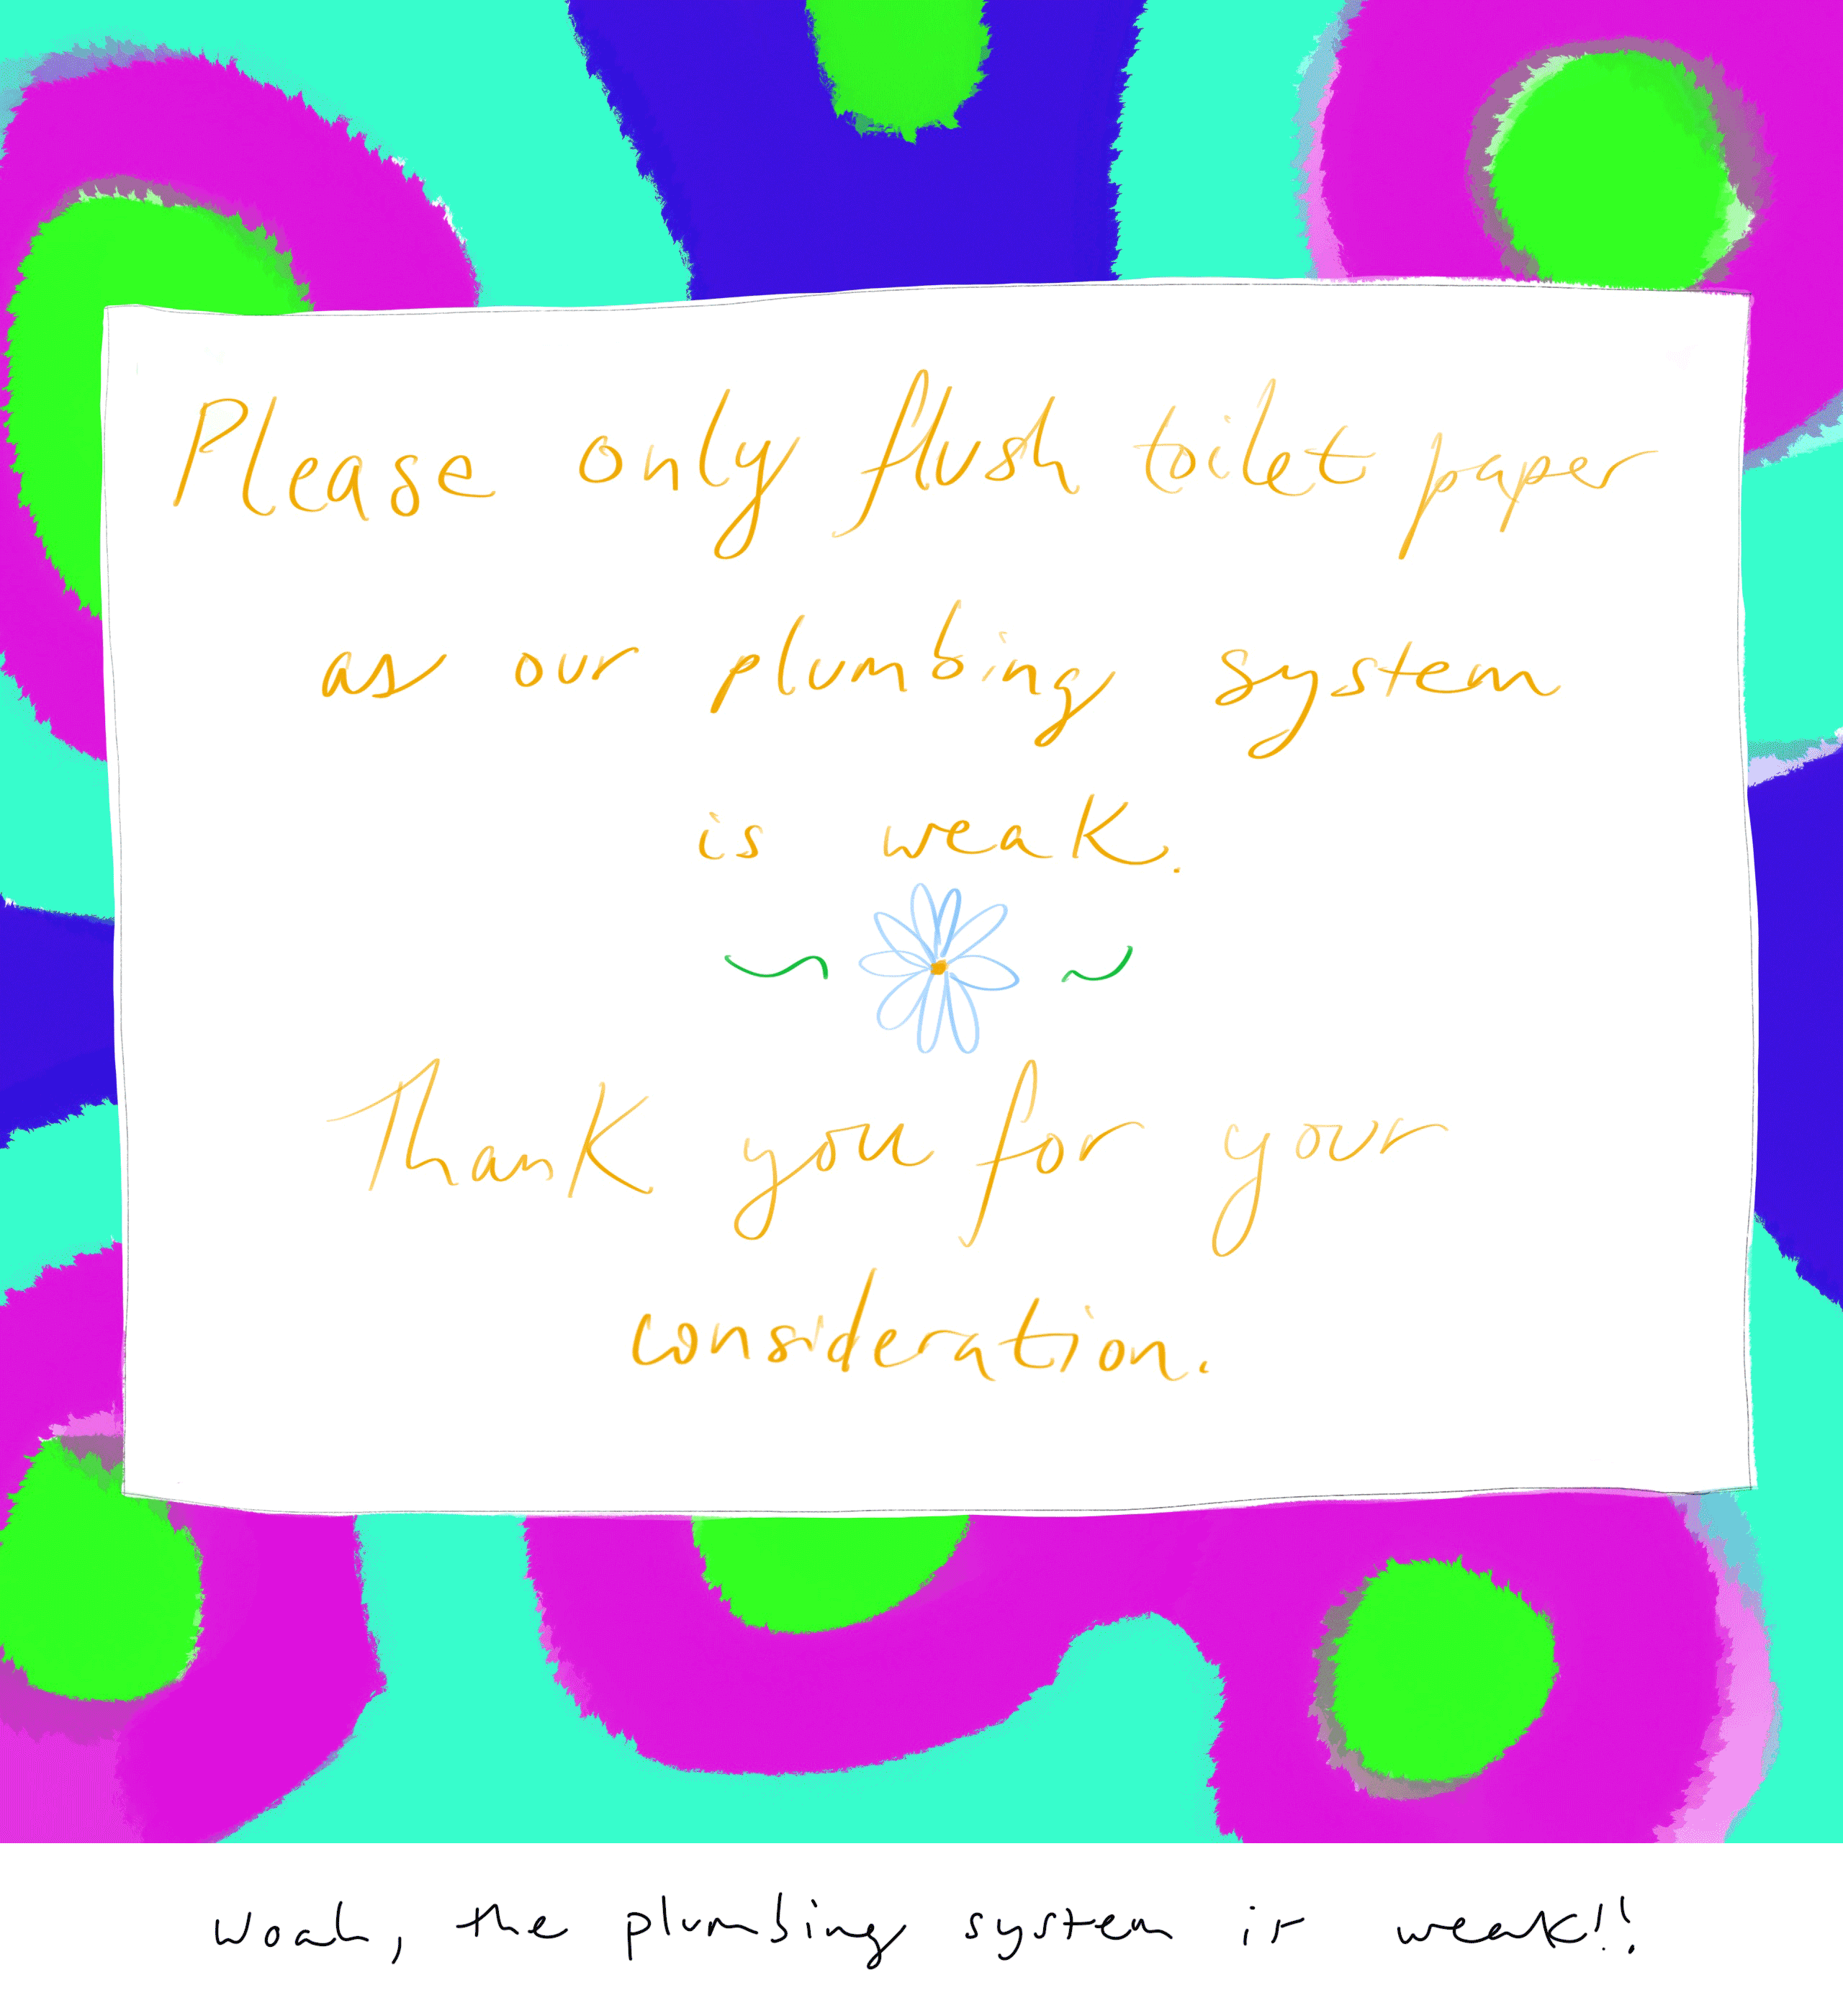 Please only flush toilet paper
as our plumbing system
is weak.
Thank you for your
consideration.
woah, the plumbing system is weak!!